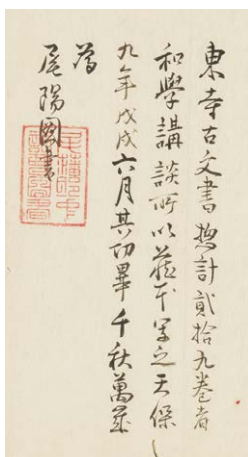 東寺古文書惣計貳拾九卷者
和學講談所以藏本寫之天保
九年戊戌六月其功畢千秋萬歲
為
尾陽圖書